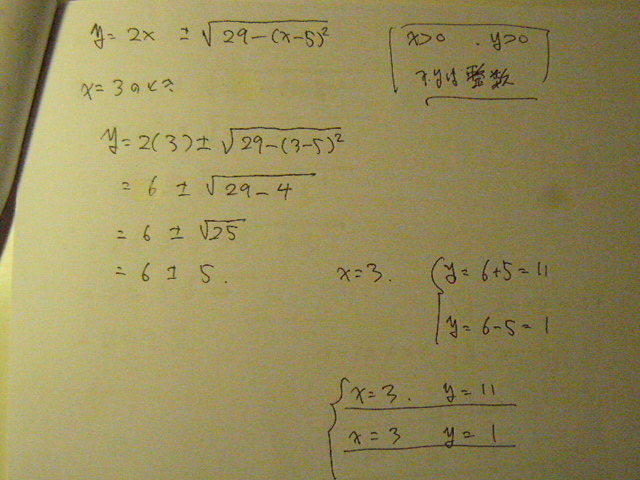 y = 2x ± √29-(x-5)²
x>0 . y>0
x, yは整数
x = 3のとき
y = 2(3) ± √29-(3-5)²
= 6 ± √29-4
= 6 ± √25
= 6 ± 5.
x=3. { y = 6+5 = 11
y = 6-5 = 1
{ x=3. y=11
x=3 y=1